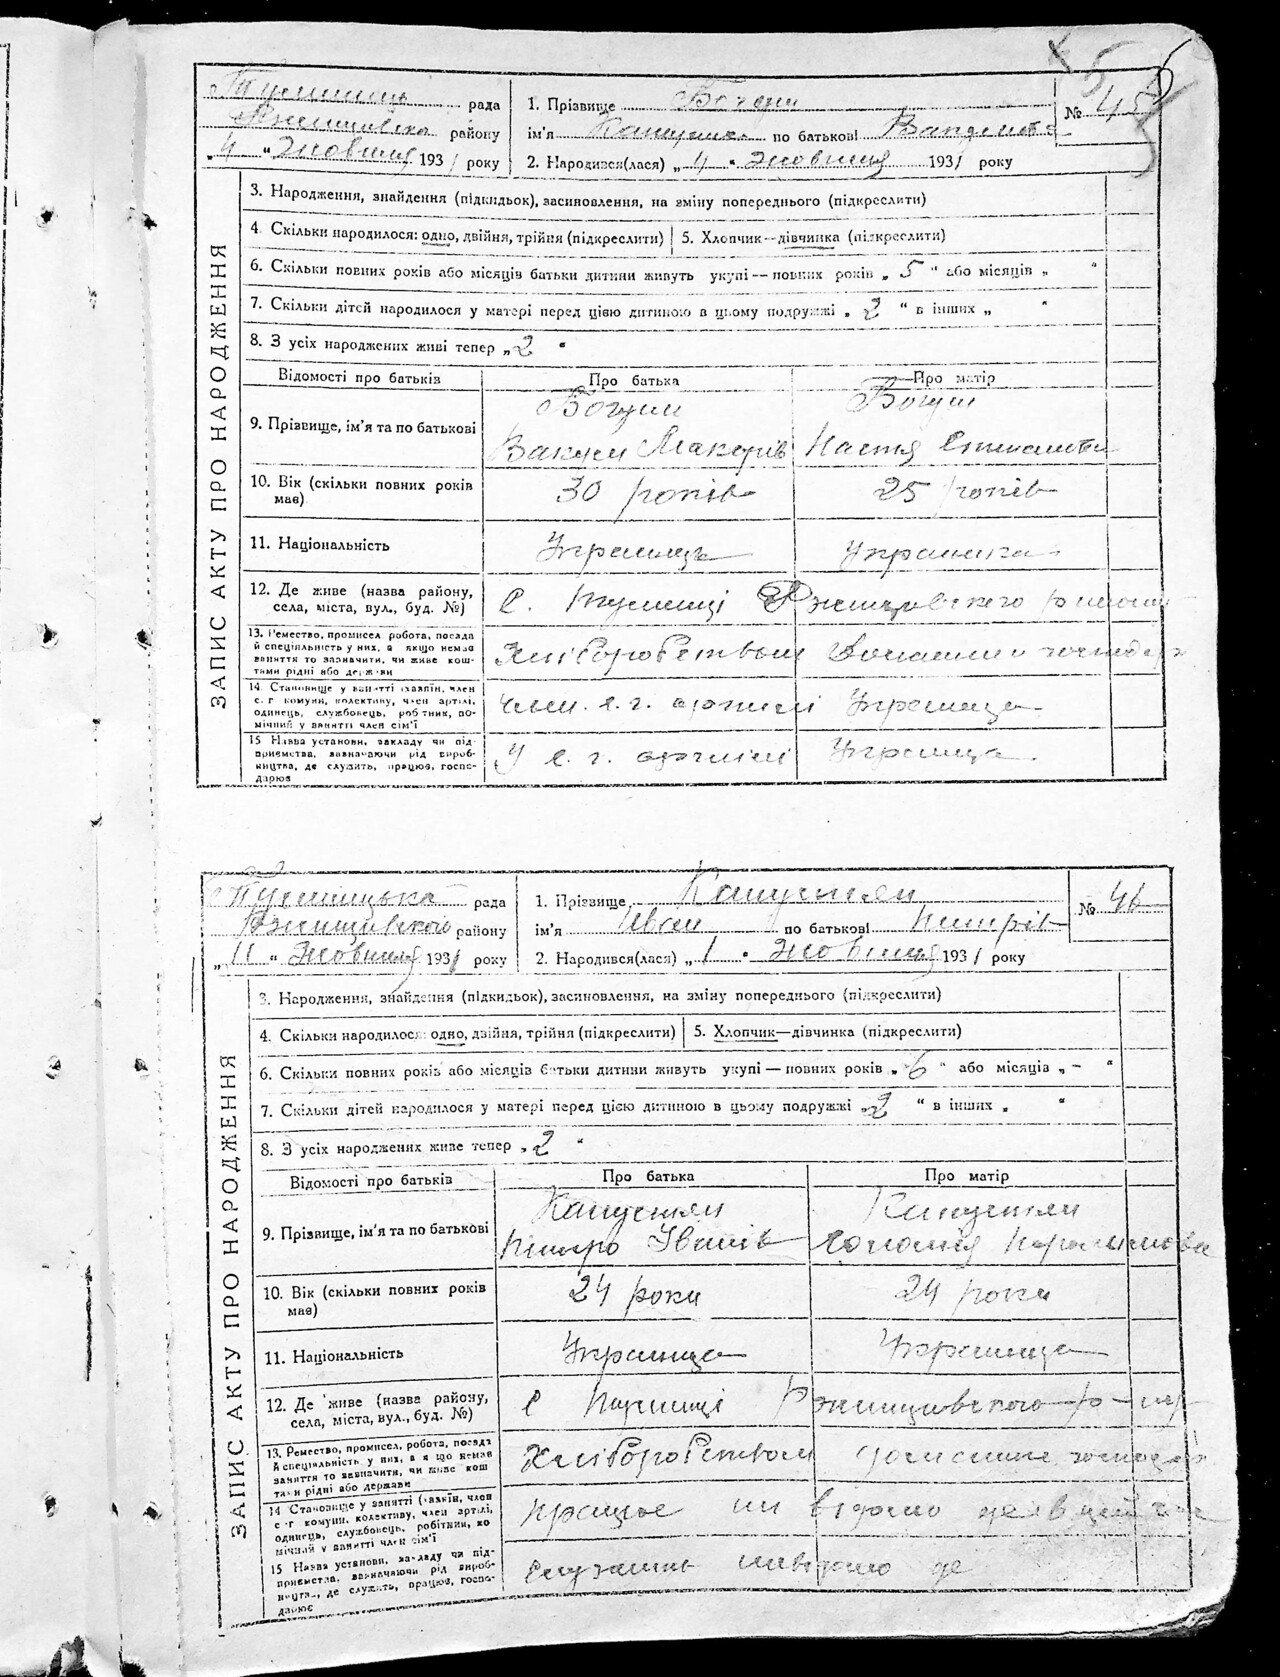 рада
району
„4" Жовтня 1931 року
1. Прізвище
ім'я по батькові
2. Народився(лася) „4" Жовтня 1931 року
№ 45
ЗАПИС АКТУ ПРО НАРОДЖЕННЯ
3. Народження, знайдення (підкидьок), засиновлення, на зміну попереднього (підкреслити)
4. Скільки народилося: одно, двійня, трійня (підкреслити) 5. Хлопчик—дівчинка (підкреслити)
6. Скільки повних років або місяців батьки дитини живуть укупі — повних років „5" або місяців „ "
7. Скільки дітей народилося у матері перед цією дитиною в цьому подружжі „2" в інших „ "
8. З усіх народжених живі тепер „2"
Відомості про батьків Про батька Про матір
9. Прізвище, ім'я та по батькові
Макарів Настя
10. Вік (скільки повних років має) 30 років 25 років
11. Національність Українець Українка
12. Де живе (назва району, села, міста, вул., буд. №) с. Ржищівського району
13. Ремество, промисел робота, посада й спеціяльність у них, а якщо немає заняття то зазначити, чи живе коштами рідні або держави Хліборобством
14. Становище у занятті (хазяїн, член с.-г комуни, колективу, член артілі, одинець, службовець, робітник, помічний у занятті член сім'ї член. с. г. артілі
15 Назва установи, закладу чи підприємства, зазначаючи рід виробництва, де служить, працює, господарює У с. г. артілі
рада
Ржищівського району
„11" Жовтня 1931 року
1. Прізвище Капустян
ім'я Іван по батькові Петрів
2. Народився(лася) „1" Жовтня 1931 року
№ 46
ЗАПИС АКТУ ПРО НАРОДЖЕННЯ
3. Народження, знайдення (підкидьок), засиновлення, на зміну попереднього (підкреслити)
4. Скільки народилося: одно, двійня, трійня (підкреслити) 5. Хлопчик—дівчинка (підкреслити)
6. Скільки повних років або місяців батьки дитини живуть укупі — повних років „6" або місяців „-"
7. Скільки дітей народилося у матері перед цією дитиною в цьому подружжі „2" в інших „ "
8. З усіх народжених живе тепер „2"
Відомості про батьків Про батька Про матір
9. Прізвище, ім'я та по батькові Капустян Капустян
Петро Іванів
10. Вік (скільки повних років має) 24 роки 24 роки
11. Національність
12. Де живе (назва району, села, міста, вул., буд. №) с Ржищівського
13. Ремество, промисел, робота, посада й спеціяльність у них, а якщо немає заняття то зазначити, чи живе коштами рідні або держави Хліборобством
14 Становище у занятті (хазяїн, член с-г комуни, колективу, член артілі, одинець, службовець, робітник, помічний у занятті член сім'ї працює
15 Назва установи, закладу чи підприємства, зазначаючи рід виробництва, де служить, працює, господарює де